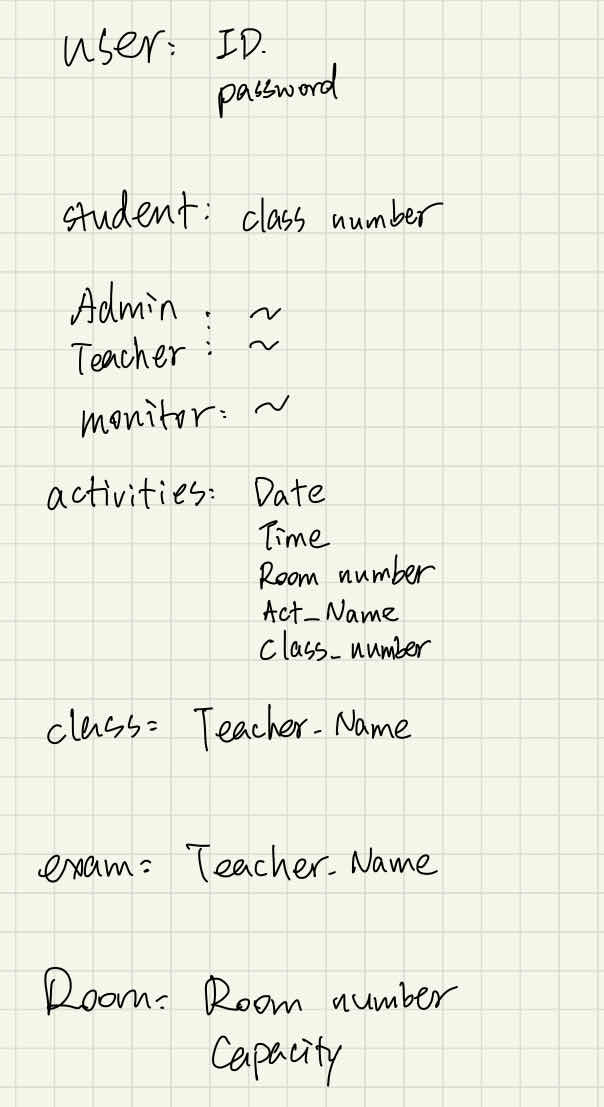 user: ID.
password
student: class number
Admin : ~
Teacher : ~
monitor: ~
activities: Date
Time
Room number
Act_Name
Class_number
class: Teacher_Name
exam: Teacher_Name
Room: Room number
Capacity